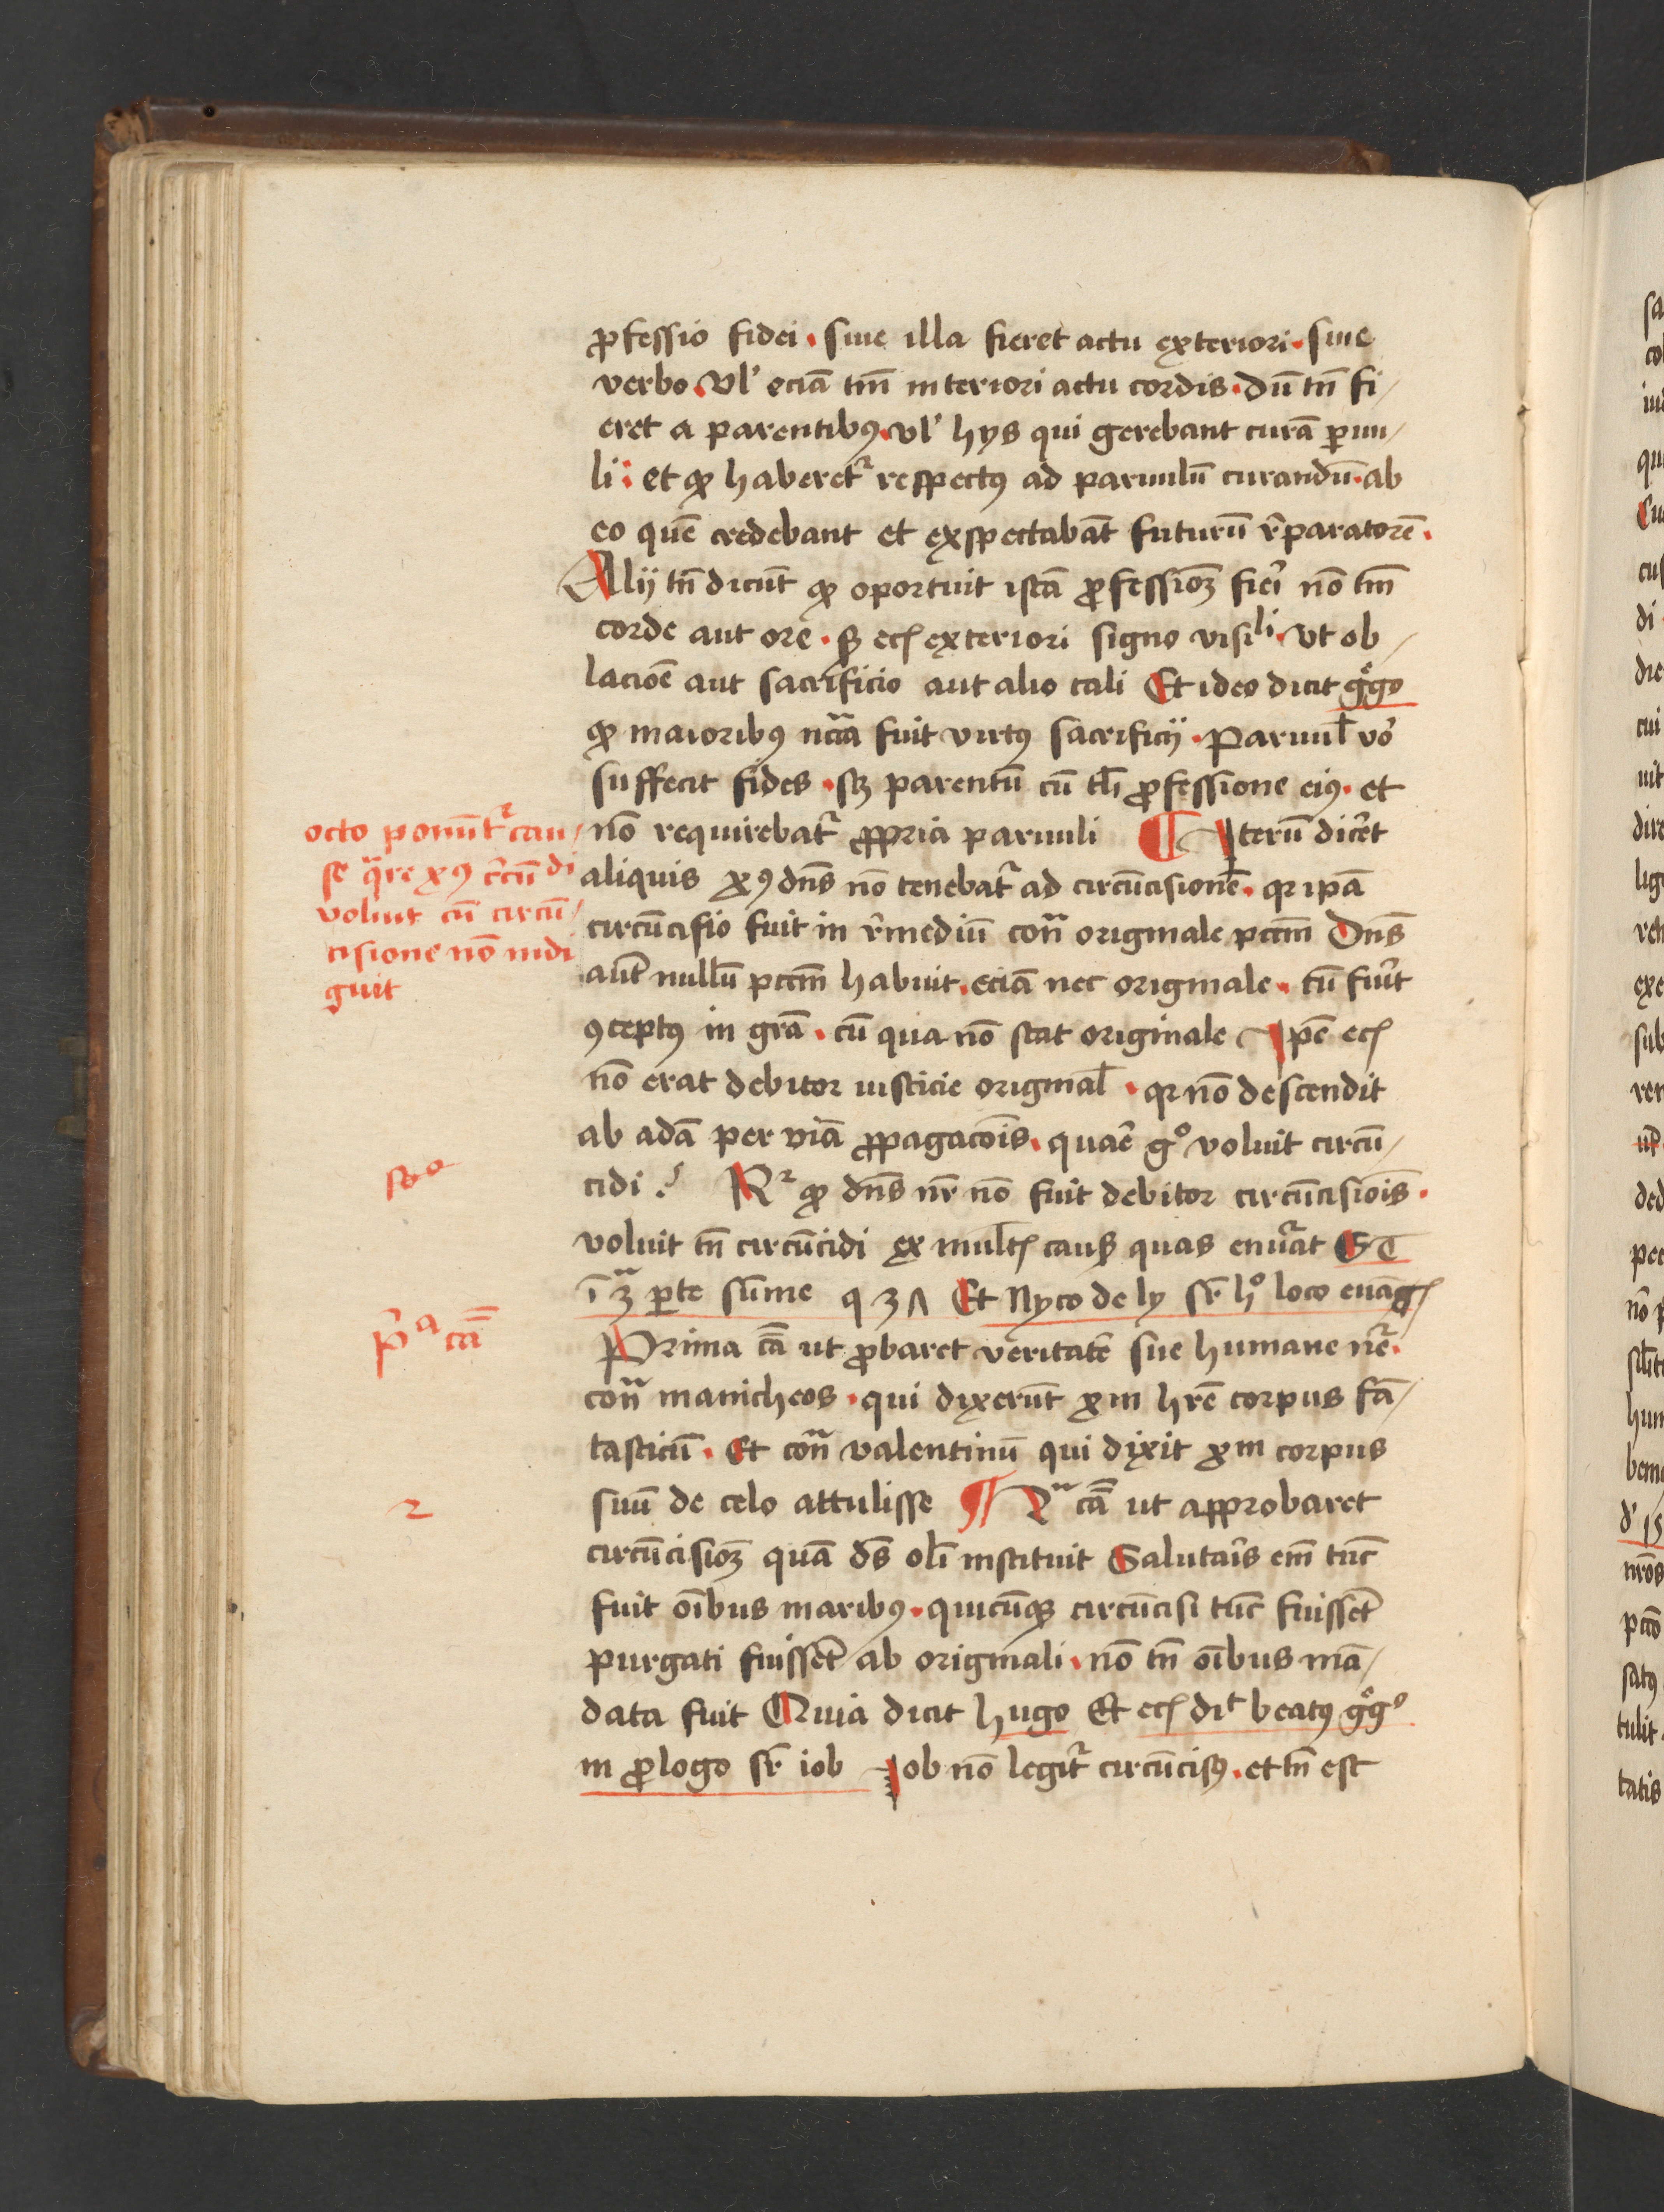 ꝓfessio fidei · siue illa fieret actu exteriori · siue
verbo · vl' eciā tm̄ interiori actu cordis · dū tn̄ fi/
eret a parentibꝯ · vl' hys qui gerebant curā ꝑuu/
li : et ꝙ haberet᷑ respectꝯ ad paruulū curandū · ab
eo quē credebant et exspectabāt futurū r̄paratorē ·
Alij tn̄ dicūt ꝙ oportuit istā ꝓfessioꝫ fieri nō tm̄
corde aut ore · sꝫ ecꝭ exteriori signo visi^li · vt ob/
lacioē aut sacrificio aut alio tali Et ideo dicit gͤgo
ꝙ maioribꝯ nc̄cā fuit virtꝯ sacrificij · Paruul̄ vō
suffecit fides · sꝫ parentū cū tl̄i ꝓfessione eiꝯ · et
nō requirebat᷑ ꝓpria paruuli ¶ Iterū dicēt
aliquis xꝯ dn̄s nō tenebat᷑ ad circūcisionē · qꝛ ipā
circūcisio fuit in r̄mediū cont̄ originale pctm̄ Dn̄s
aūt nullū pctm̄ habuit · eciā nec originale · cū fuīt
ꝯceptꝯ in grā · cū qua nō stat originale Ipē ecꝭ
nō erat debitor iusticie original̄ · qꝛ nō descendit
ab adā per viā ꝓpagacōis · quaē gͦ voluit circū/
cidi ? Rꝛ ꝙ dn̄s nr̄ nō fuit debitor circūcisiōis ·
voluit tn̄ circūcidi ex mult̄ꝭ causꝭ quas enu᷑at S T
ī 3ᵃ ꝑte sūme q 3Λ Et Nyco de ly sr̄ hͦ loco euāgꝭ
Prima cā ut ꝓbaret veritatē sue humane nr̄e ·
cont̄ manicheos · qui dixerūt xm hr̄e corpus fā/
tasticū · Et cont̄ valentinū qui dixit xm corpus
suū de celo attulisse ¶ 2ᵃ cā ut approbaret
circūcisioꝫ quā ds̄ oli̅ instituit Salutais em̄ tūc
fuit oībus maribꝯ · quicūqꝫ circūcisi tūc fuissēt
purgati fuissēt ab originali · nō tn̄ oībus mā/
data fuit Quia dicit hugo Et ecꝭ di^t beatꝯ gͤgͦ
in ꝓlogo sr̄ iob Iob nō legit᷑ circūcisꝯ · et tn̄ est
octo ponūt᷑ cau/
se qᵃre xꝯ c̄rcū^di
voluit cū circū/
cisione nō indi
guit
so^o
p̄^a cā
2